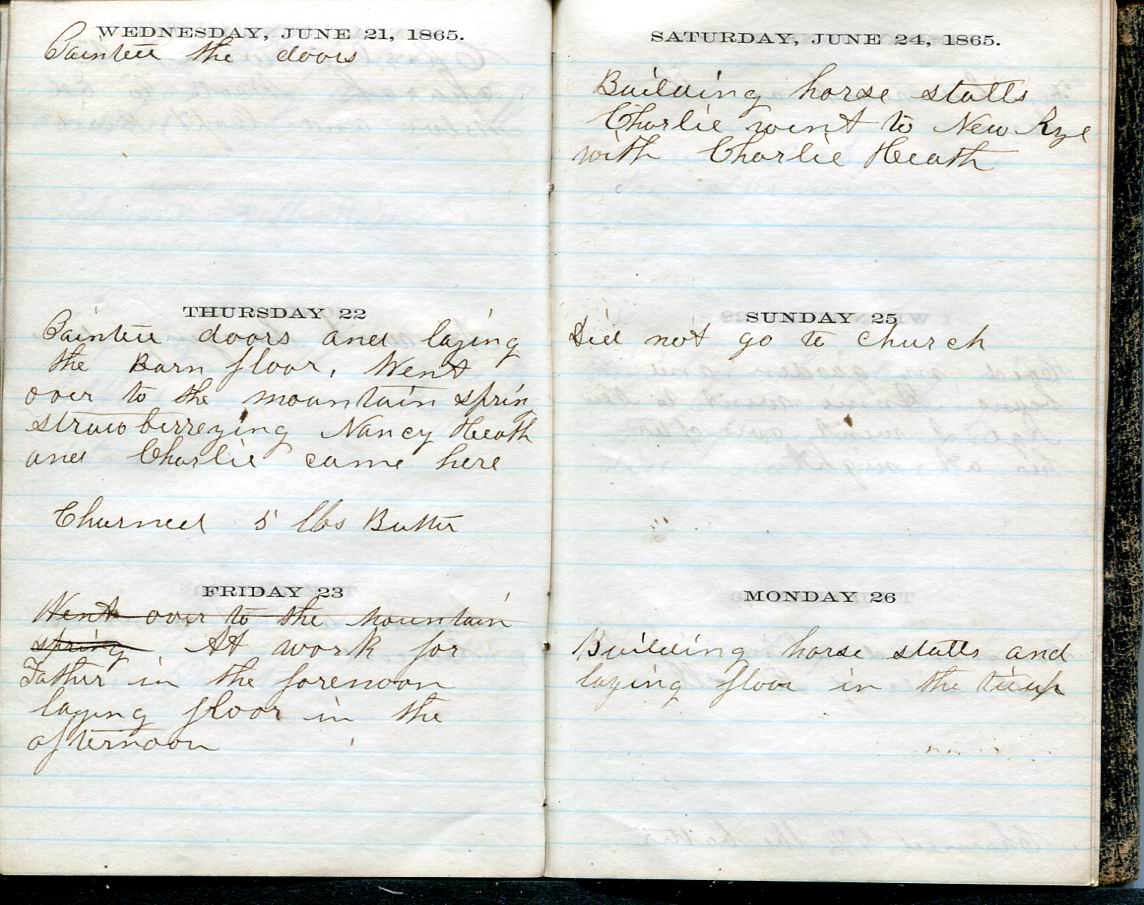 WEDNESDAY, JUNE 21, 1865.
Painted the doors
THURSDAY 22
Painted doors and laying
the Barn floor, Went
over to the mountain sprin
strawberreying Nancy Heath
and Charlie came here
Churned 5 lbs Butter
FRIDAY 23
Went over to the mountain
spring At work for
Father in the forenoon
laying floor in the
afternoon
SATURDAY, JUNE 24, 1865.
Building horse stalls
Charlie went to New Rye
with Charlie Heath
SUNDAY 25
Did not go to church
MONDAY 26
Building horse stalls and
laying floor in the tieup